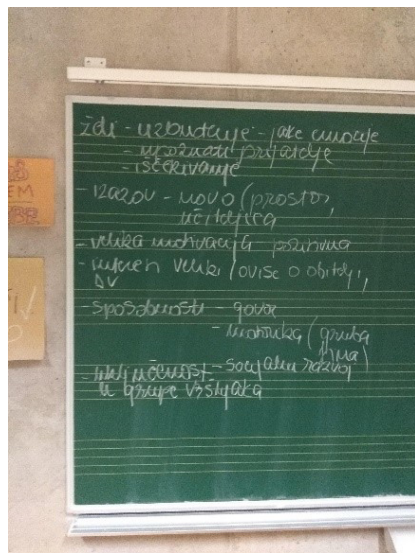 žđr - uzbuđenje - jake emocije
- upoznati prijatelje
- iščekivanje
- izazov - novo (prostor,
učiteljica
- velika motivacija pozitivna
- interes veliki (ovisi o obitelji,
DV
- sposobnosti - govor
- motorika (gruba
fina)
- uključenost - socijalni razvoj
u grupe vršnjaka
EM
BE